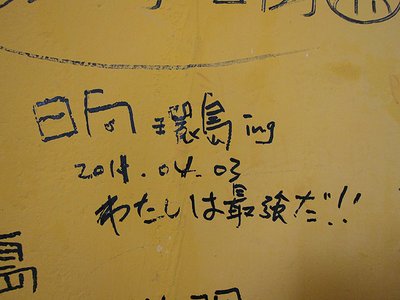 日向 環島 ing
2014.04.03
わたしは最強だ!!
島